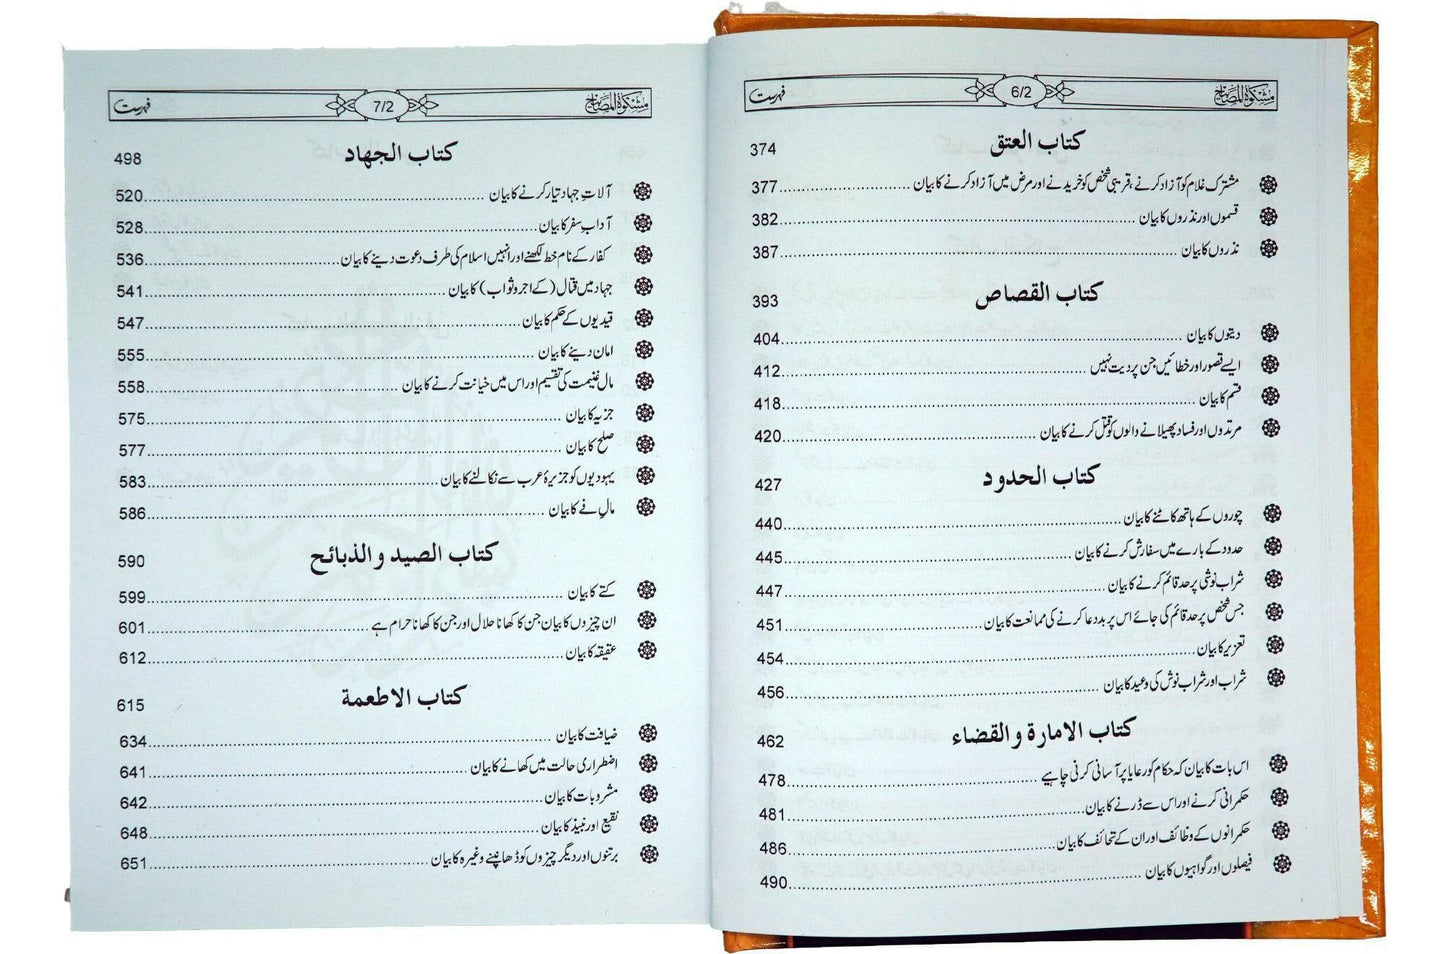 مشکوٰۃ المصابیح 6/2 فہرست
کتاب العتق 374
مشترک غلام کو آزاد کرنے، قریبی شخص کو خریدنے اور مرض میں آزاد کرنے کا بیان 377
قسموں اور نذروں کا بیان 382
نذروں کا بیان 387
کتاب القصاص 393
دیتوں کا بیان 404
ایسے قصور اور خطائیں جن پر دیت نہیں 412
قسم کا بیان 418
مرتدوں اور فساد پھیلانے والوں کو قتل کرنے کا بیان 420
کتاب الحدود 427
چوروں کے ہاتھ کاٹنے کا بیان 440
حدود کے بارے میں سفارش کرنے کا بیان 445
شراب نوشی پر حد قائم کرنے کا بیان 447
جس شخص پر حد قائم کی جائے اس پر بددعا کرنے کی ممانعت کا بیان 451
تعزیر کا بیان 454
شراب اور شراب نوش کی وعید کا بیان 456
کتاب الامارة والقضاء 462
اس بات کا بیان کہ حکام کو رعایا پر آسانی کرنی چاہیے 478
حکمرانی کرنے اور اس سے ڈرنے کا بیان 481
حکمرانوں کے وظائف اور ان کے تحائف کا بیان 486
فیصلوں اور گواہیوں کا بیان 490
مشکوٰۃ المصابیح 7/2 فہرست
کتاب الجهاد 498
آلاتِ جہاد تیار کرنے کا بیان 520
آدابِ سفر کا بیان 528
کفار کے نام خط لکھنے اور انہیں اسلام کی طرف دعوت دینے کا بیان 536
جہاد میں قتال (کے اجر و ثواب) کا بیان 541
قیدیوں کے حکم کا بیان 547
امان دینے کا بیان 555
مال غنیمت کی تقسیم اور اس میں خیانت کرنے کا بیان 558
جزیہ کا بیان 575
صلح کا بیان 577
یہودیوں کو جزیرۂ عرب سے نکالنے کا بیان 583
مالِ فے کا بیان 586
کتاب الصید والذبائح 590
کتے کا بیان 599
ان چیزوں کا بیان جن کا کھانا حلال اور جن کا کھانا حرام ہے 601
عقیقہ کا بیان 612
کتاب الاطعمة 615
ضیافت کا بیان 634
اضطراری حالت میں کھانے کا بیان 641
مشروبات کا بیان 642
نقیع اور نبیذ کا بیان 648
برتنوں اور دیگر چیزوں کو ڈھانپنے وغیرہ کا بیان 651